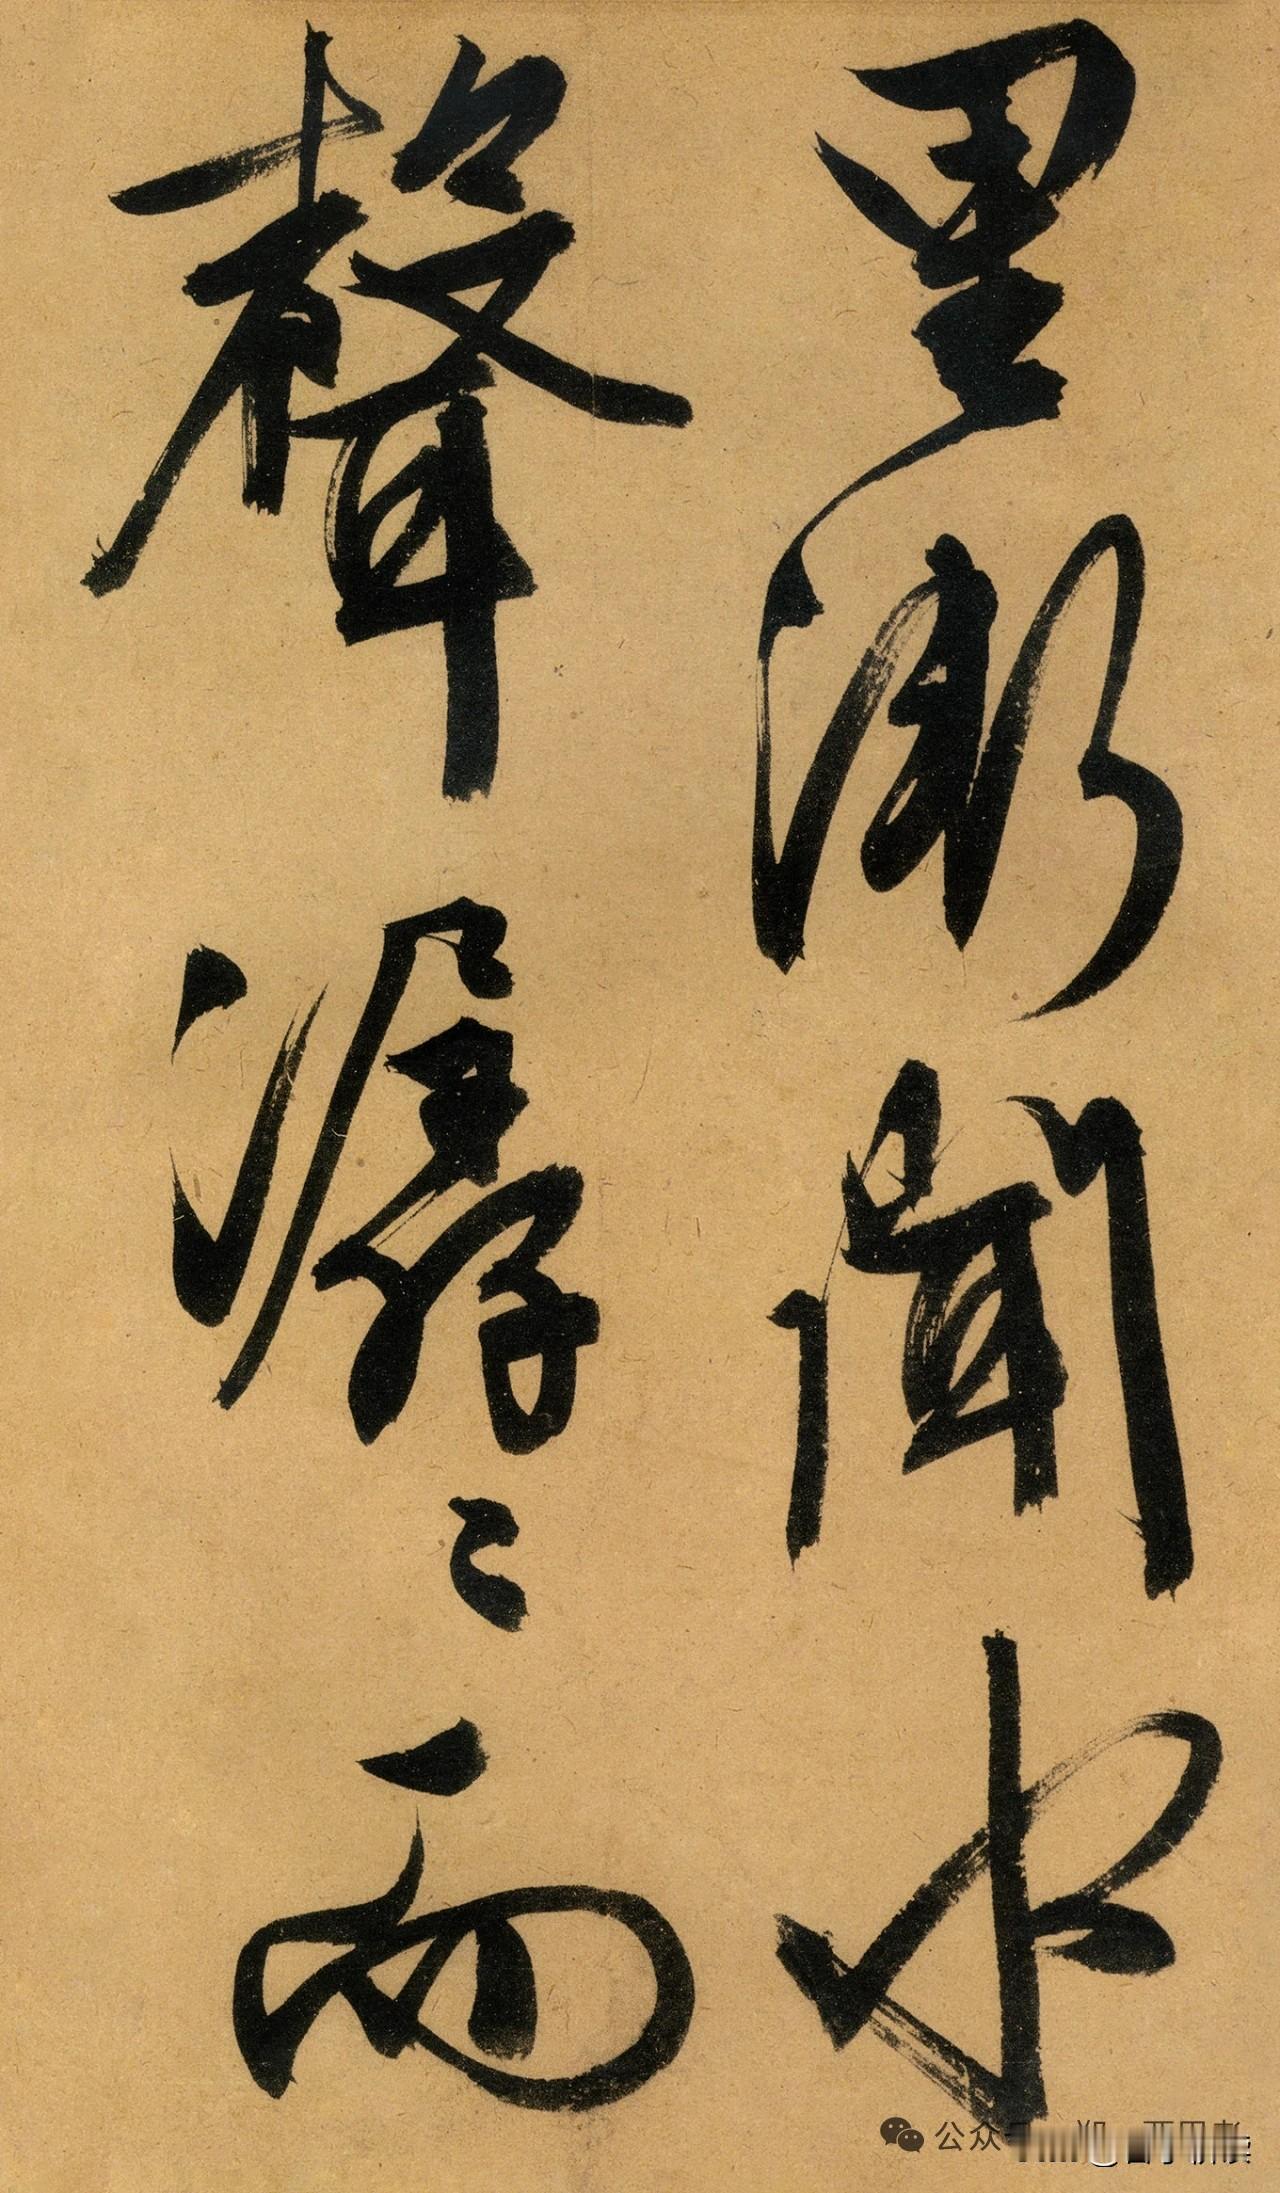 里漸聞水
聲潺〻而
公众号